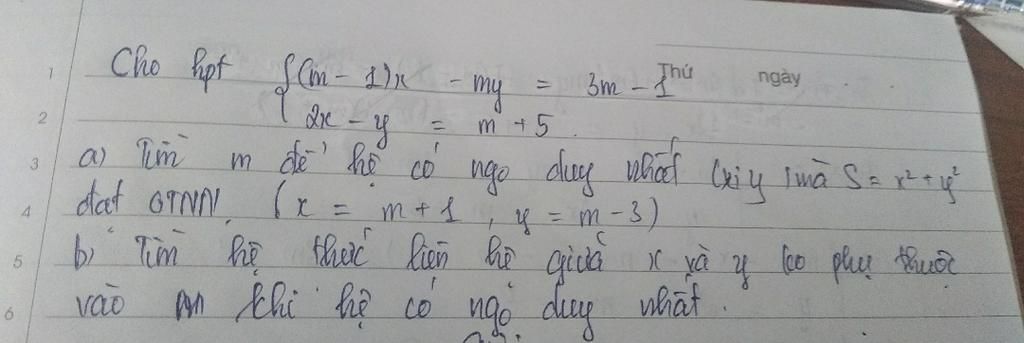 Cho hpt { (m - 1)x - my = 3m - 1
Thứ ngày
2x - y = m + 5
a) Tìm m để hệ có ngo duy nhất (x;y) mà S = x² + y²
đạt GTNN. (x = m + 1, y = m - 3)
b) Tìm hệ thức liên hệ giữa x và y ko phụ thuộc
vào m khi hệ có ngo duy nhất.
1
2
3
4
5
6